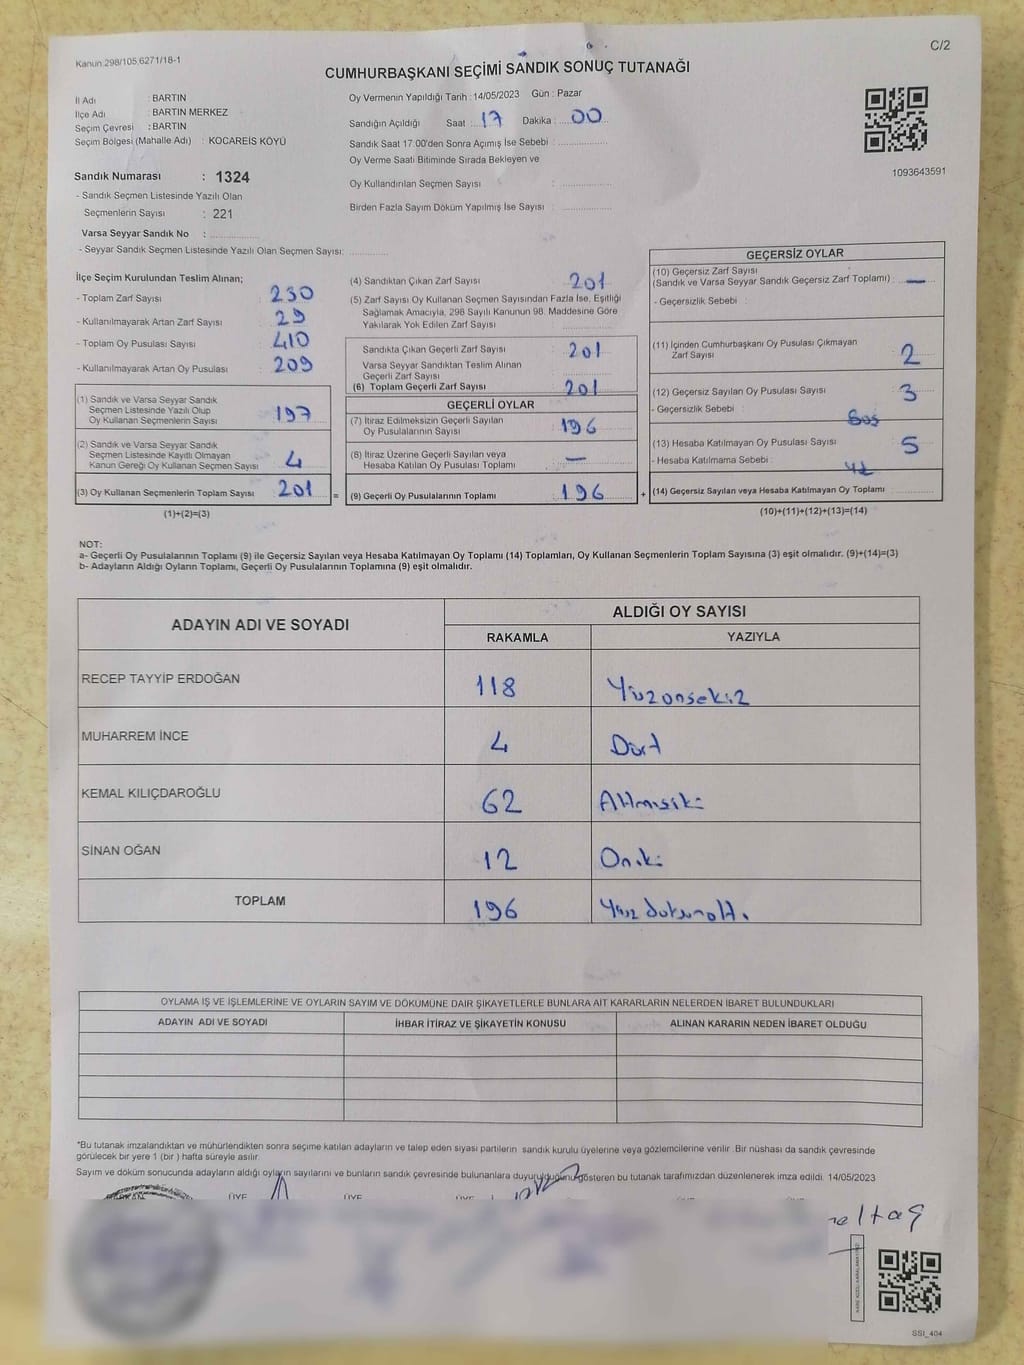 Kanun.298/105,6271/18-1
C/2
CUMHURBAŞKANI SEÇİMİ SANDIK SONUÇ TUTANAĞI
İl Adı : BARTIN
İlçe Adı : BARTIN MERKEZ
Seçim Çevresi : BARTIN
Seçim Bölgesi (Mahalle Adı) : KOCAREİS KÖYÜ
Sandık Numarası : 1324
- Sandık Seçmen Listesinde Yazılı Olan
Seçmenlerin Sayısı : 221
Varsa Seyyar Sandık No :
- Seyyar Sandık Seçmen Listesinde Yazılı Olan Seçmen Sayısı:
Oy Vermenin Yapıldığı Tarih : 14/05/2023 Gün : Pazar
Sandığın Açıldığı Saat : 17 Dakika : 00
Sandık Saat 17.00'den Sonra Açımış İse Sebebi :
Oy Verme Saati Bitiminde Sırada Bekleyen ve
Oy Kullandırılan Seçmen Sayısı :
Birden Fazla Sayım Döküm Yapılmış İse Sayısı :
1093643591
İlçe Seçim Kurulundan Teslim Alınan;
- Toplam Zarf Sayısı 230
- Kullanılmayarak Artan Zarf Sayısı 29
- Toplam Oy Pusulası Sayısı 410
- Kullanılmayarak Artan Oy Pusulası 209
(1) Sandık ve Varsa Seyyar Sandık
Seçmen Listesinde Yazılı Olup
Oy Kullanan Seçmenlerin Sayısı 197
(2) Sandık ve Varsa Seyyar Sandık
Seçmen Listesinde Kayıtlı Olmayan
Kanun Gereği Oy Kullanan Seçmen Sayısı 4
(3) Oy Kullanan Seçmenlerin Toplam Sayısı 201 =
(1)+(2)=(3)
(4) Sandıktan Çıkan Zarf Sayısı 201
(5) Zarf Sayısı Oy Kullanan Seçmen Sayısından Fazla İse, Eşitliği
Sağlamak Amacıyla, 298 Sayılı Kanunun 98. Maddesine Göre
Yakılarak Yok Edilen Zarf Sayısı
Sandıkta Çıkan Geçerli Zarf Sayısı 201
Varsa Seyyar Sandıktan Teslim Alınan
Geçerli Zarf Sayısı
(6) Toplam Geçerli Zarf Sayısı 201
GEÇERLİ OYLAR
(7) İtiraz Edilmeksizin Geçerli Sayılan
Oy Pusulalarının Sayısı 196
(8) İtiraz Üzerine Geçerli Sayılan veya
Hesaba Katılan Oy Pusulası Toplamı —
(9) Geçerli Oy Pusulalarının Toplamı 196 +
GEÇERSİZ OYLAR
(10) Geçersiz Zarf Sayısı
(Sandık ve Varsa Seyyar Sandık Geçersiz Zarf Toplamı) —
- Geçersizlik Sebebi :
(11) İçinden Cumhurbaşkanı Oy Pusulası Çıkmayan
Zarf Sayısı 2
(12) Geçersiz Sayılan Oy Pusulası Sayısı 3
- Geçersizlik Sebebi :
(13) Hesaba Katılmayan Oy Pusulası Sayısı 5
- Hesaba Katılmama Sebebi :
(14) Geçersiz Sayılan veya Hesaba Katılmayan Oy Toplamı
(10)+(11)+(12)+(13)=(14)
NOT:
a- Geçerli Oy Pusulalarının Toplamı (9) ile Geçersiz Sayılan veya Hesaba Katılmayan Oy Toplamı (14) Toplamları, Oy Kullanan Seçmenlerin Toplam Sayısına (3) eşit olmalıdır. (9)+(14)=(3)
b- Adayların Aldığı Oyların Toplamı, Geçerli Oy Pusulalarının Toplamına (9) eşit olmalıdır.
ADAYIN ADI VE SOYADI
ALDIĞI OY SAYISI
RAKAMLA YAZIYLA
RECEP TAYYİP ERDOĞAN 118 Yüzonsekiz
MUHARREM İNCE 4 Dört
KEMAL KILIÇDAROĞLU 62 Altmışiki
SİNAN OĞAN 12 Oniki
TOPLAM 196 Yüz doksanaltı
OYLAMA İŞ VE İŞLEMLERİNE VE OYLARIN SAYIM VE DÖKÜMÜNE DAİR ŞİKAYETLERLE BUNLARA AİT KARARLARIN NELERDEN İBARET BULUNDUKLARI
ADAYIN ADI VE SOYADI İHBAR İTİRAZ VE ŞİKAYETİN KONUSU ALINAN KARARIN NEDEN İBARET OLDUĞU
*Bu tutanak imzalandıktan ve mühürlendikten sonra seçime katılan adayların ve talep eden siyasi partilerin sandık kurulu üyelerine veya gözlemcilerine verilir. Bir nüshası da sandık çevresinde
görülecek bir yere 1 (bir ) hafta süreyle asılır.
Sayım ve döküm sonucunda adayların aldığı oyların sayılarını ve bunların sandık çevresinde bulunanlara duyurulduğunu gösteren bu tutanak tarafımızdan düzenlenerek imza edildi. 14/05/2023
ÜYE ÜYE ÜYE
SSI_404